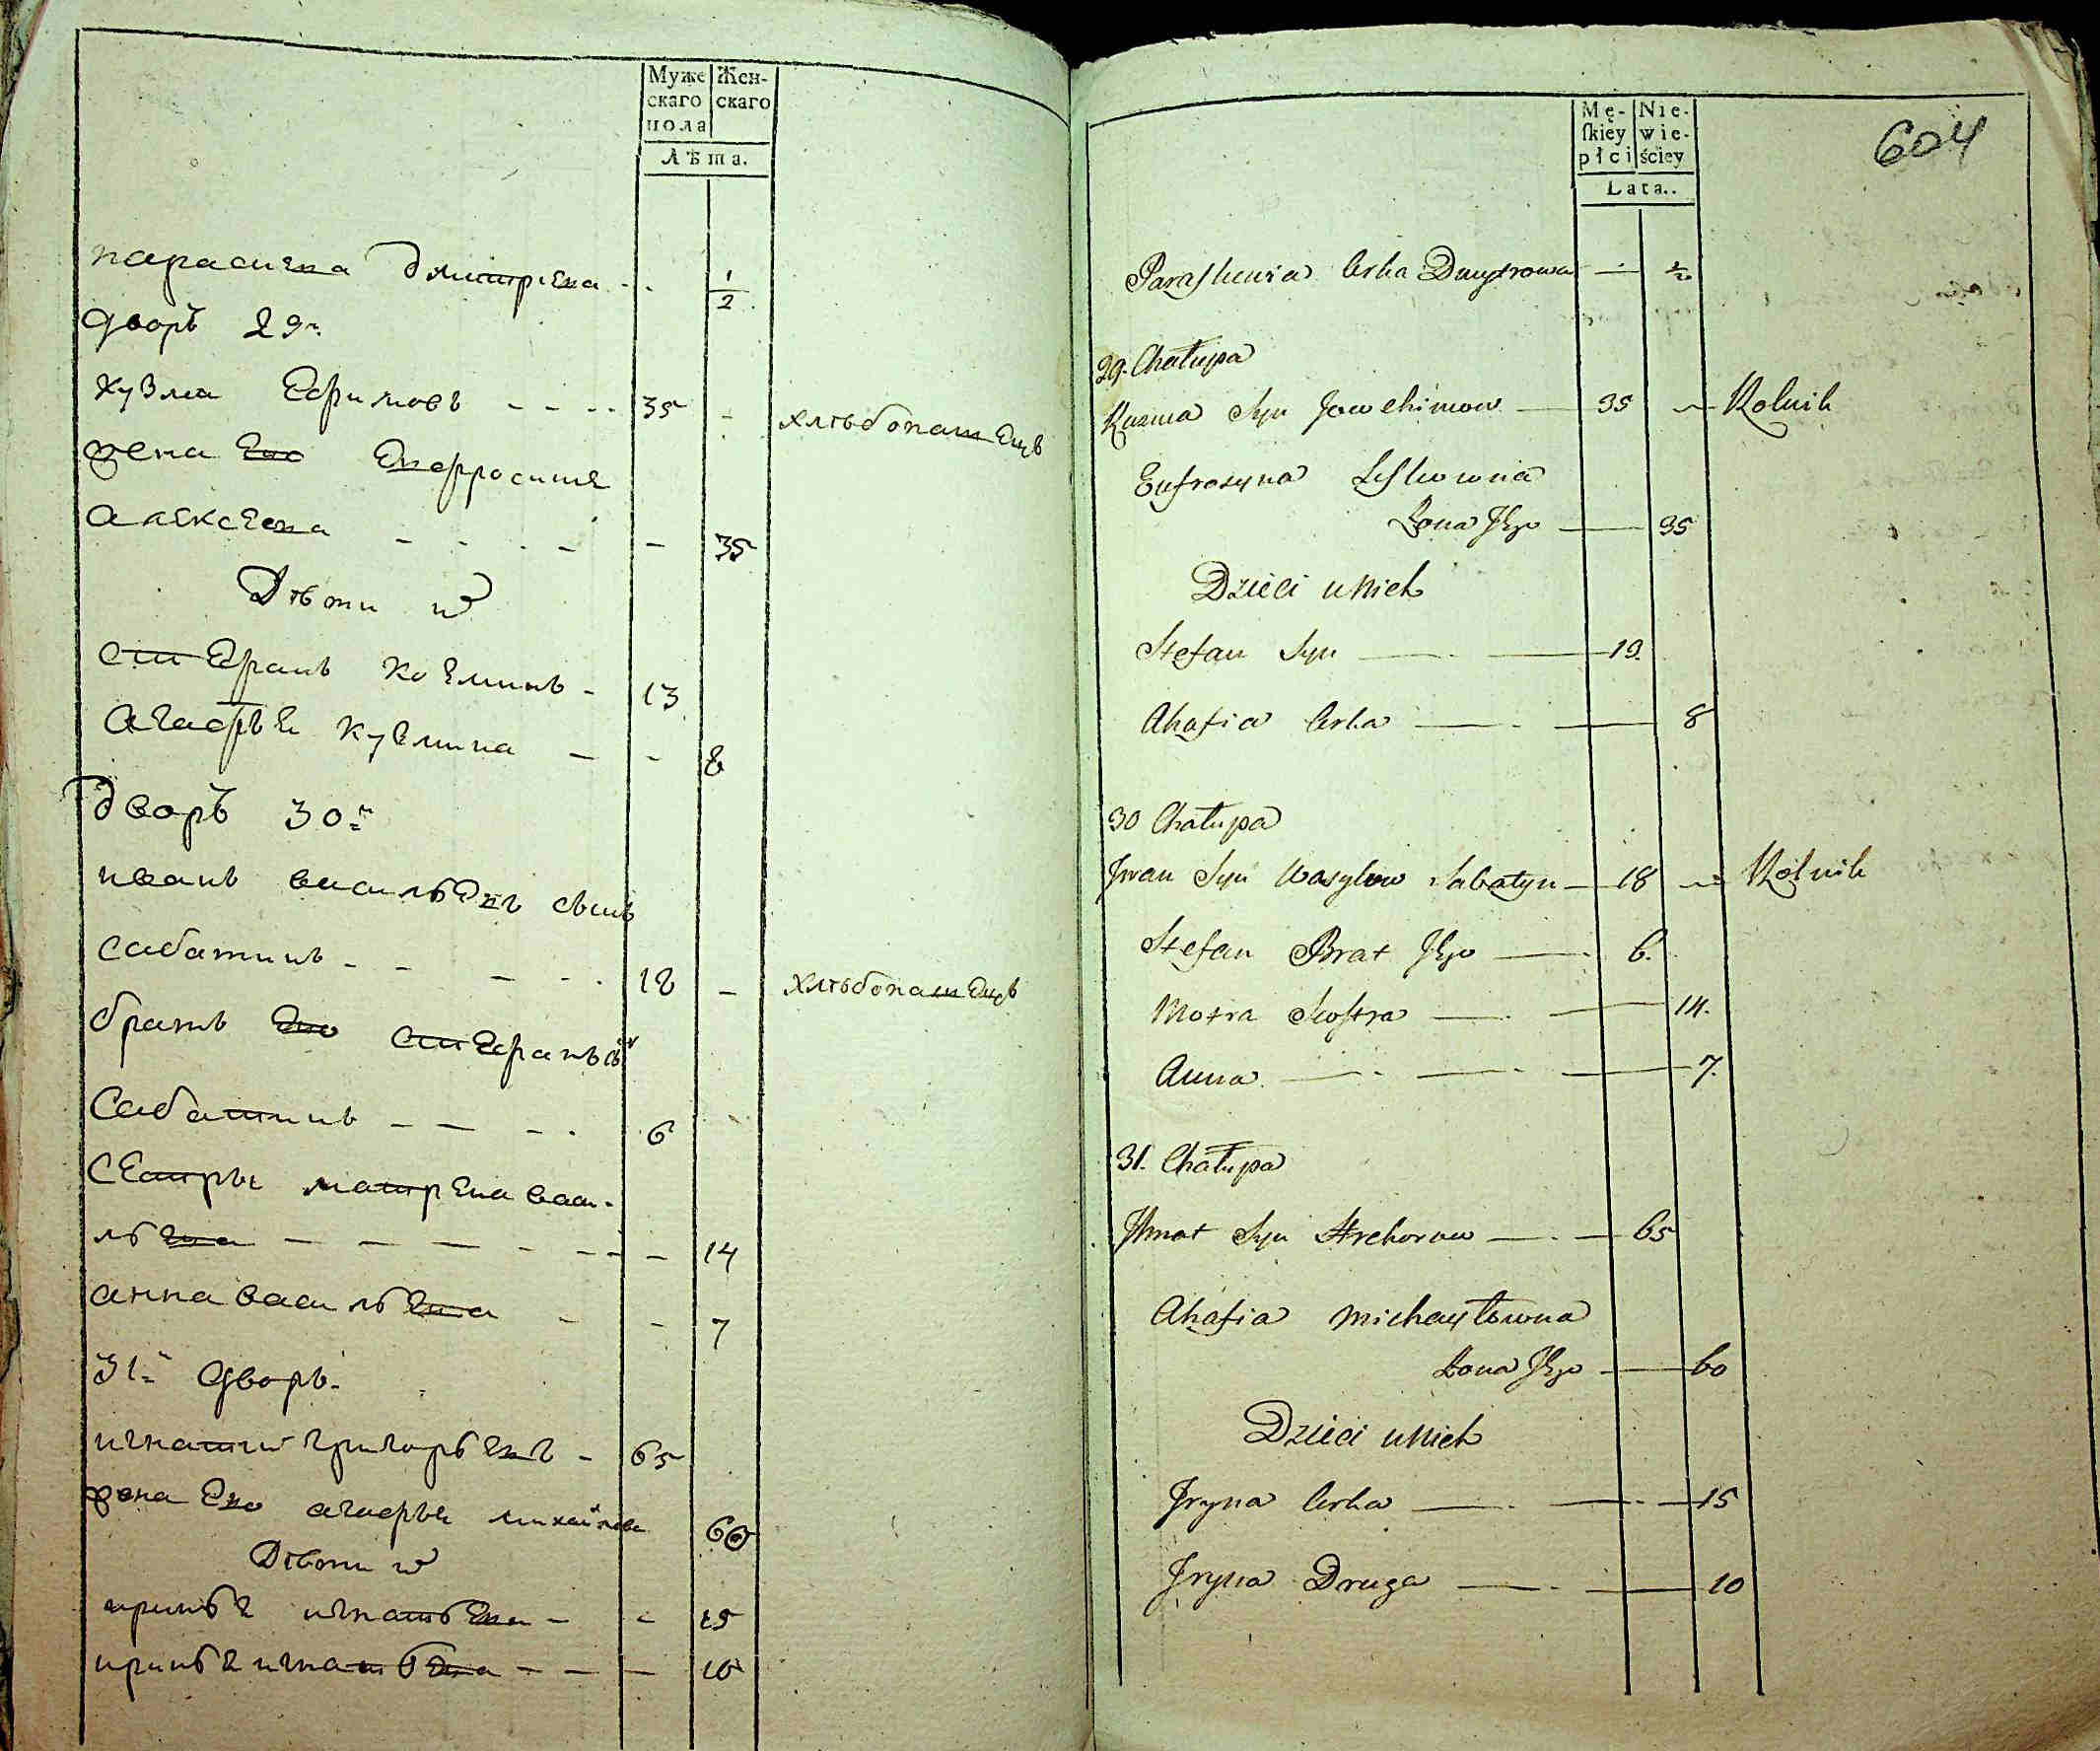 Муже Жен-
скаго скаго
пола
Лѣта.
парасиева дмитриева - . 1/2
дворъ 29й
кузма Ефимовъ - - - - 35 - хлѣбопашецъ
жена Его Евфросиния
алексеева - - - - - 35
Дѣти ихъ
стефанъ козминъ - 13
агафья кузмина - - 8
дворъ 30й
иванъ васильевъ сынъ
сабатинъ - - - - - 18 - хлѣбопашецъ
братъ Его стефанъ
Сабатинъ - - - - 6
сестры матрена васи-
льева - - - - - - - 14
анна васильева - - 7
31й дворъ
игнатий григорьевъ - 65
жена Его агафья михайлова 60
Дѣти ихъ
иринья игнатьева - - 15
иринья игнатьева - - - 10
604
Mę- Nie-
skiey wie-
płci ściey
Lata..
Paraskewia Corka Dmytrowa — 1/2
29. Chałupa
Kuzma Syn Jowchimow — 35 — Rolnik
Eufrozyna
Żona Jego — 35
Dzieci u Nich
Stefan Syn — — 13.
Ahafia Corka — — 8
30 Chałupa
Jwan Syn Wasylow Sabatyn — 18 — Rolnik
Stefan Brat Jego — 6.
Motra Siostra — — 14.
Anna — — — 7.
31. Chałupa
Jhnat Syn Hrehorow — — 65
Ahafia Michayłowna
Żona Jego — 60
Dzieci u Nich
Jryna Corka — — 15
Jryna Druga — — 10